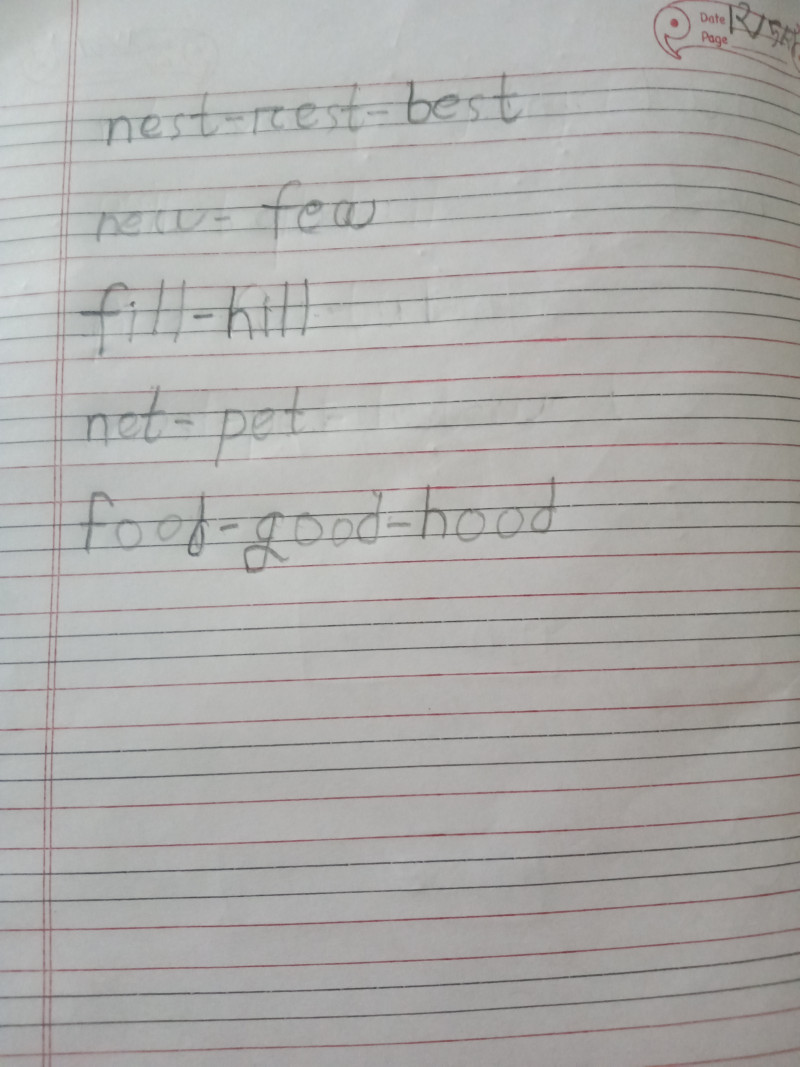 Date
Page
nest-rest-best
new- few
fill-hill
net- pet
food-good-hood